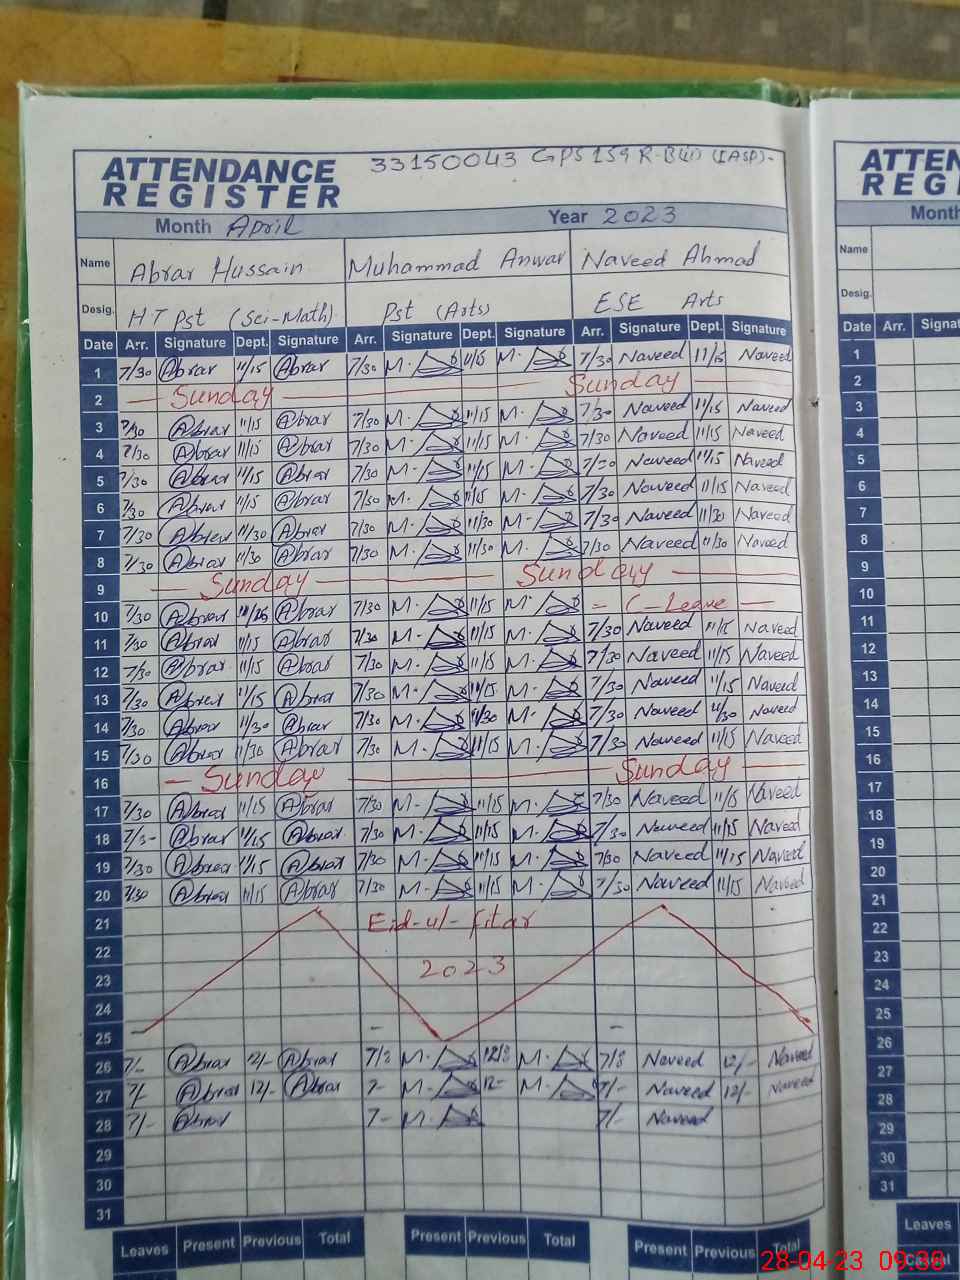 ATTENDANCE REGISTER 33150043 GPS 159 R-B (IASP)-
Month April Year 2023
Name Abrar Hussain Muhammad Anwar Naveed Ahmad
Desig. HT Pst (Sci-Math) Pst (Arts) ESE Arts
Date Arr. Signature Dept. Signature Arr. Signature Dept. Signature Arr. Signature Dept. Signature
1 7/30 Abrar 11/15 Abrar 7/30 M. 11/15 M. 7/30 Naveed 11/15 Naveed
2 Sunday Sunday
3 7/30 Abrar 11/15 Abrar 7/30 M. 11/15 M. 7/30 Naveed 11/15 Naveed
4 7/30 Abrar 11/15 Abrar 7/30 M. 11/15 M. 7/30 Naveed 11/15 Naveed
5 7/30 Abrar 11/15 Abrar 7/30 M. 11/15 M. 7/30 Naveed 11/15 Naveed
6 7/30 Abrar 11/15 Abrar 7/30 M. 11/15 M. 7/30 Naveed 11/15 Naveed
7 7/30 Abrar 11/30 Abrar 7/30 M. 11/30 M. 7/30 Naveed 11/30 Naveed
8 7/30 Abrar 11/30 Abrar 7/30 M. 11/30 M. 7/30 Naveed 11/30 Naveed
9 Sunday Sunday
10 7/30 Abrar Abrar 7/30 M. 11/15 M. = C-Leave
11 7/30 Abrar 11/15 Abrar 7/30 M. 11/15 M. 7/30 Naveed 11/15 Naveed
12 7/30 Abrar 11/15 Abrar 7/30 M. 11/15 M. 7/30 Naveed 11/15 Naveed
13 7/30 Abrar 11/15 Abrar 7/30 M. 11/15 M. 7/30 Naveed 11/15 Naveed
14 7/30 Abrar 11/30 Abrar 7/30 M. 11/30 M. 7/30 Naveed 11/30 Naveed
15 7/30 Abrar 11/30 Abrar 7/30 M. 11/15 M. 7/30 Naveed 11/15 Naveed
16 Sunday Sunday
17 7/30 Abrar 11/15 Abrar 7/30 M. 11/15 M. 7/30 Naveed 11/15 Naveed
18 7/3- Abrar 11/15 Abrar 7/30 M. 11/15 M. 7/30 Naveed 11/15 Naveed
19 7/30 Abrar 11/15 Abrar 7/30 M. 11/15 M. 7/30 Naveed 11/15 Naveed
20 7/30 Abrar 11/15 Abrar 7/30 M. 11/15 M. 7/30 Naveed 11/15 Naveed
21 Eid-ul-Fitar
22
23 2023
24
25
26 7/- Abrar 12/- Abrar M. M. Naveed 12/- Naveed
27 7/- Abrar 12/- Abrar 7- M. 12- M. 7/- Naveed 12/- Naveed
28 7/- Abrar 7- M. 7/- Naveed
29
30
31
Leaves Present Previous Total Present Previous Total Present Previous Total
ATTEN
REGI
Month
Name
Desig.
Date Arr. Signat
1
2
3
4
5
6
7
8
9
10
11
12
13
14
15
16
17
18
19
20
21
22
23
24
25
26
27
28
29
30
31
Leaves
Casual
28-04-23 09:38